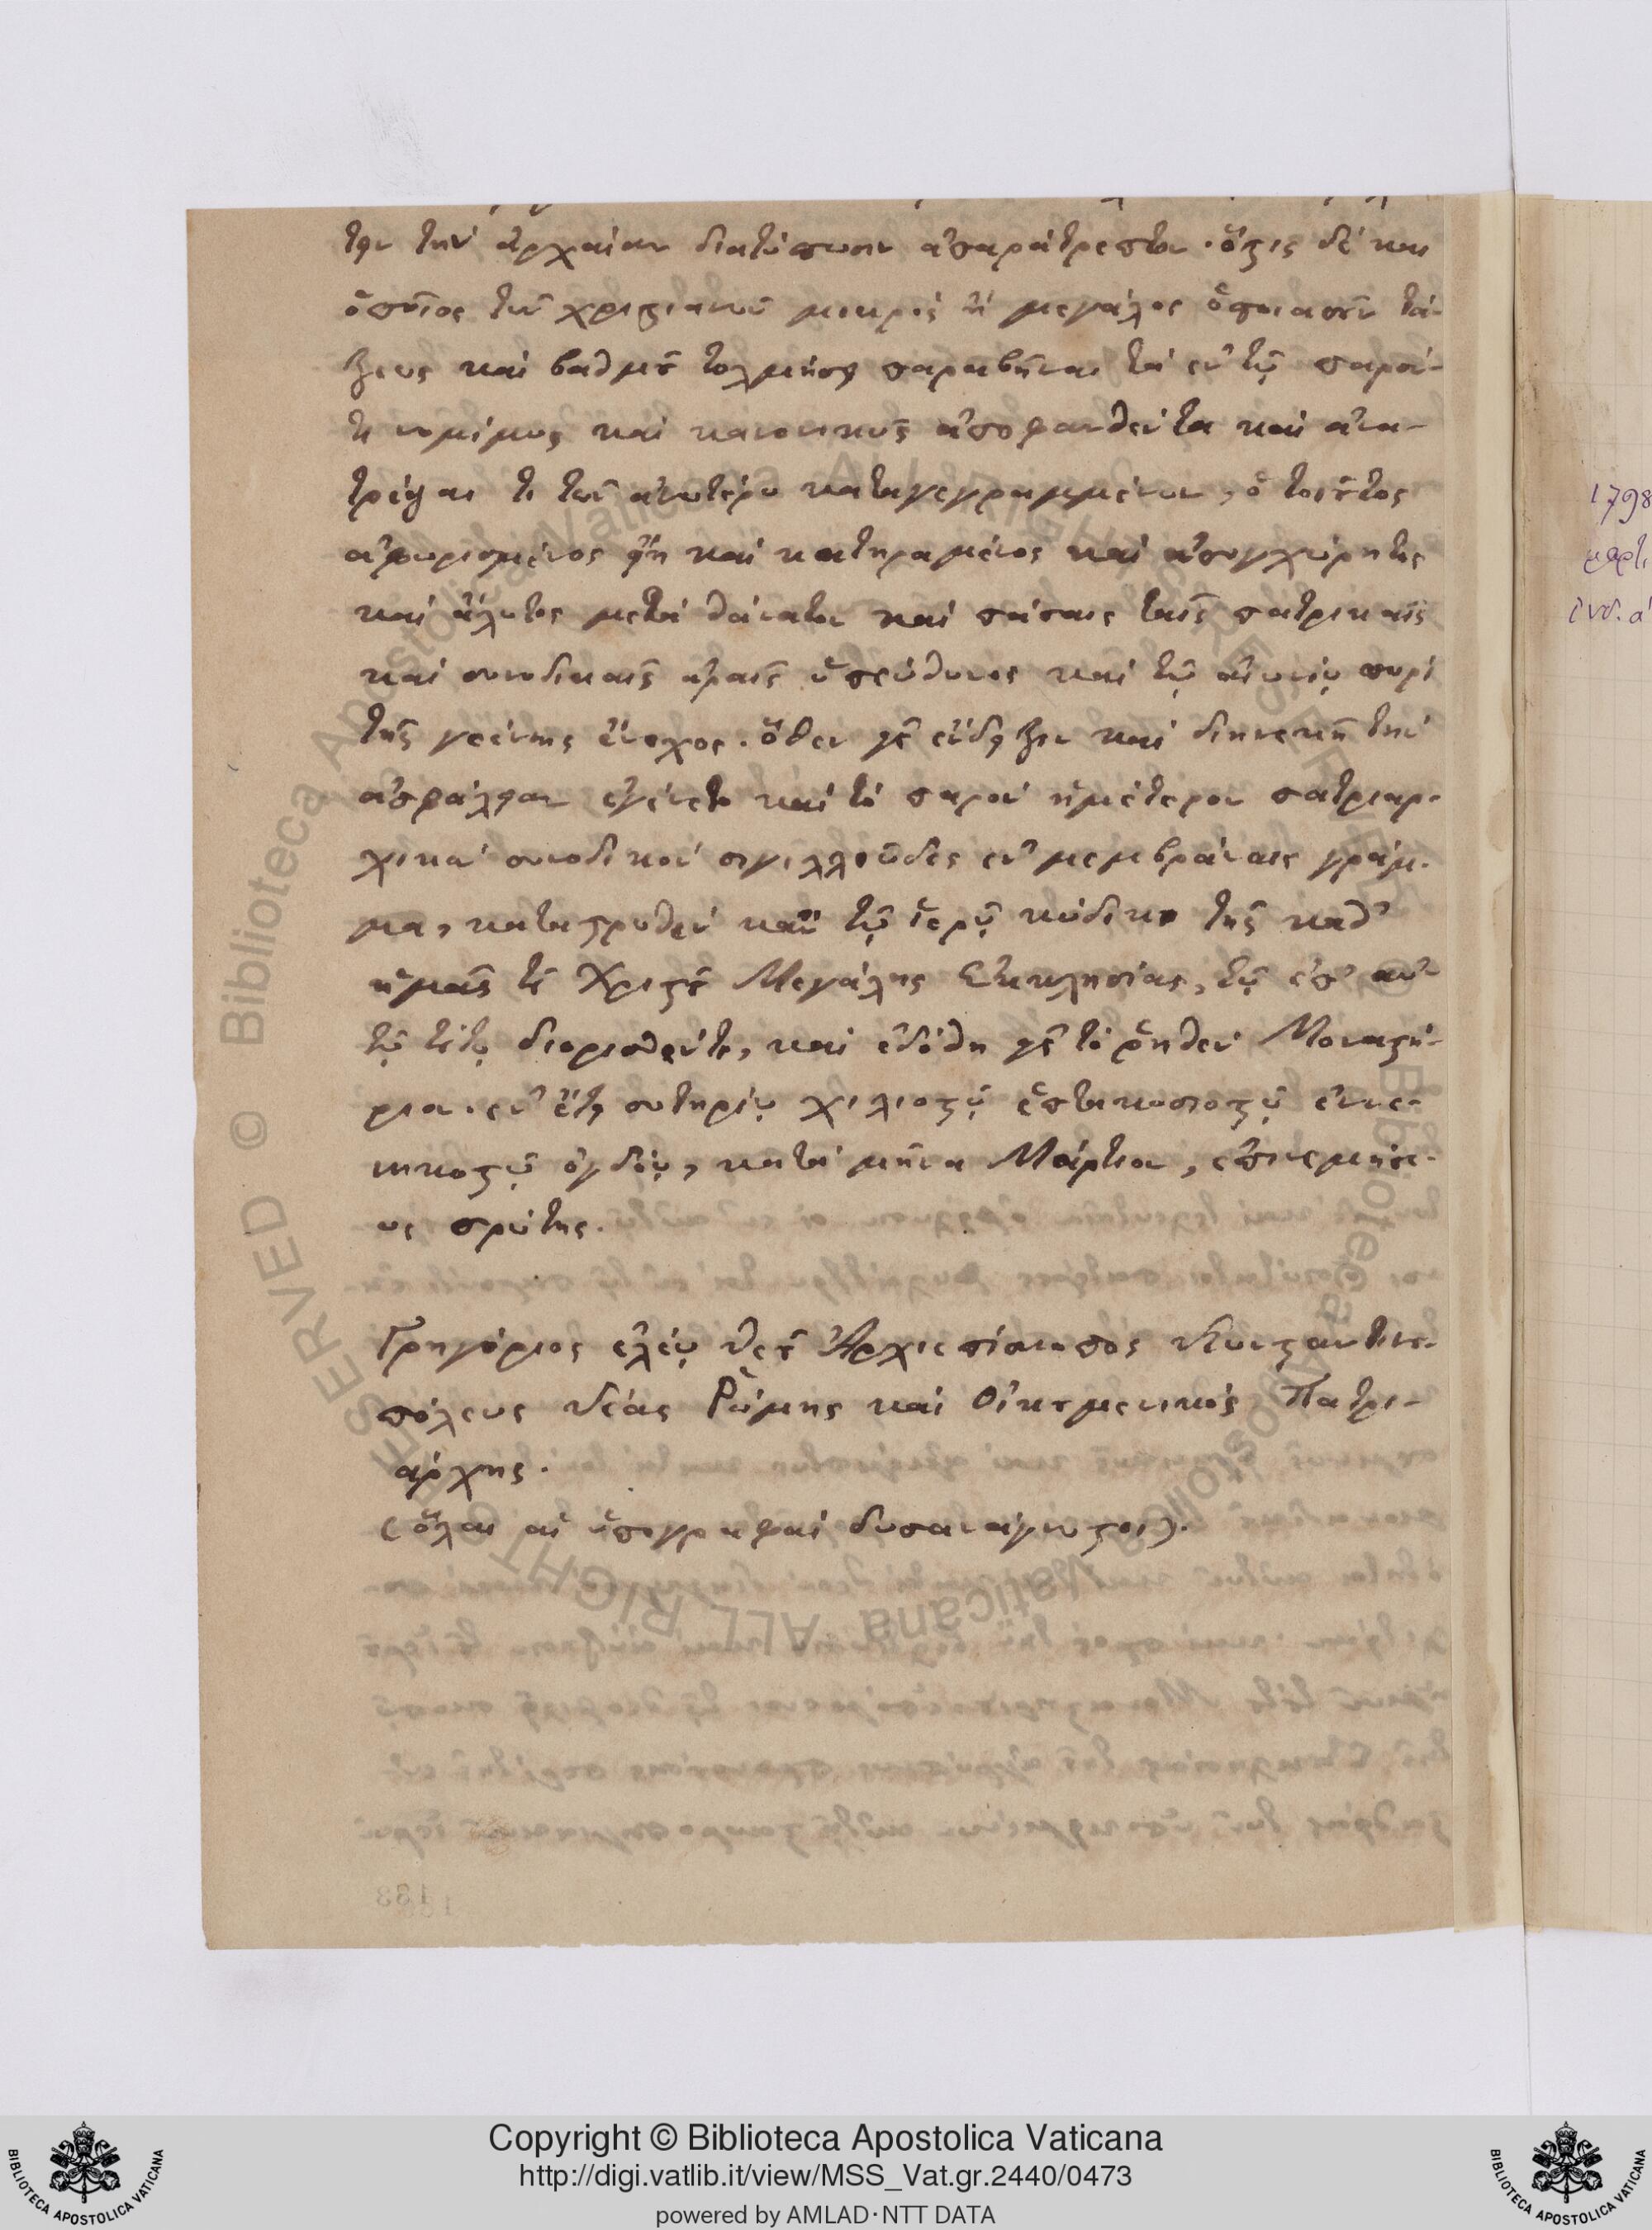 τειν τὴν ἀρχαίαν διατύπωσιν ἀπαράτρεπτον. ὅστις δὲ και
ὁποῖος τῶν χριστιανῶν μικρὸς ἢ μεγάλος ὁποιασοῦν τά-
ξεως καὶ βαθμοῦ τολμήσει παραβῆναι τὰ ἐν τῷ παρόν-
τι νομίμως καὶ κανονικῶς ἀποφανθέντα καὶ ἀνα-
τρέψαι τι τῶν ἀνωτέρω καταγεγραμμένων, ὁ τοιοῦτος
ἀφωρισμένος εἴη καὶ κατηραμένος καὶ ἀσυγχώρητος
καὶ ἄλυτος μετὰ θάνατον καὶ πάσαις ταῖς πατρικαῖς
καὶ συνοδικαῖς ἀραῖς ὑπεύθυνος καὶ τῷ αἰωνίῳ πυρὶ
τῆς γεένης ἔνοχος. ὅθεν εἰς ἔνδειξιν καὶ διηνεκῆ τὴν
ἀσφάλειαν ἐγένετο καὶ τὸ παρὸν ἡμέτερον πατριαρ-
χικὸν συνοδικὸν σιγιλλιῶδες ἐν μεμβράναις γράμ-
μα, καταστρωθὲν κἀν τῷ ἱερῷ κώδικι τῆς καθ'
ἡμᾶς τοῦ Χριστοῦ Μεγάλης Ἐκκλησίας, τῷ ἐπ' αὐ-
τῷ τούτῳ διορισθέντι, καὶ ἐδόθη εἰς τὸ ῥηθὲν Μοναστή-
ριον. ἐν ἔτει σωτηρίῳ χιλιοστῷ ἑπτακοσιοστῷ ἐννε-
νηκοστῷ ὀγδόῳ, κατὰ μῆνα Μάρτιον, ἐπινεμήσε-
ως πρώτης.
Γρηγόριος ἐλέῳ θεοῦ Ἀρχιεπίσκοπος Κωνσταντινου-
πόλεως Νέας Ῥώμης καὶ Οἰκουμενικὸς Πατρι-
άρχης.
(ὅλαι αἱ ὑπογραφαὶ δυσανάγνωστοι).
1798
μαρτι
ἰνδ. α'
133
Copyright © Biblioteca Apostolica Vaticana
http://digi.vatlib.it/view/MSS_Vat.gr.2440/0473
powered by AMLAD·NTT DATA
BIBLIOTECA APOSTOLICA VATICANA
BIBLIOTECA APOSTOLICA VATICANA
© Biblioteca Apostolica Vaticana ALL RIGHTS RESERVED